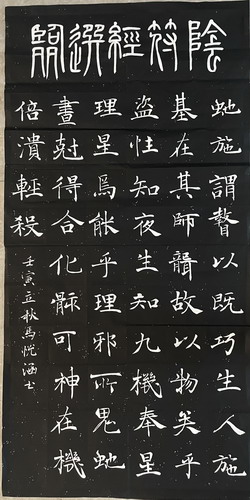 陰符經選
虵施謂瞽以既巧生人施
基在其師聾故以物矣乎
盜性知夜生知九機奉星
理星焉能乎理邪所鬼虵
晝尅得合化骸可神在機
倍潰輕殺
壬寅立秋馬悦